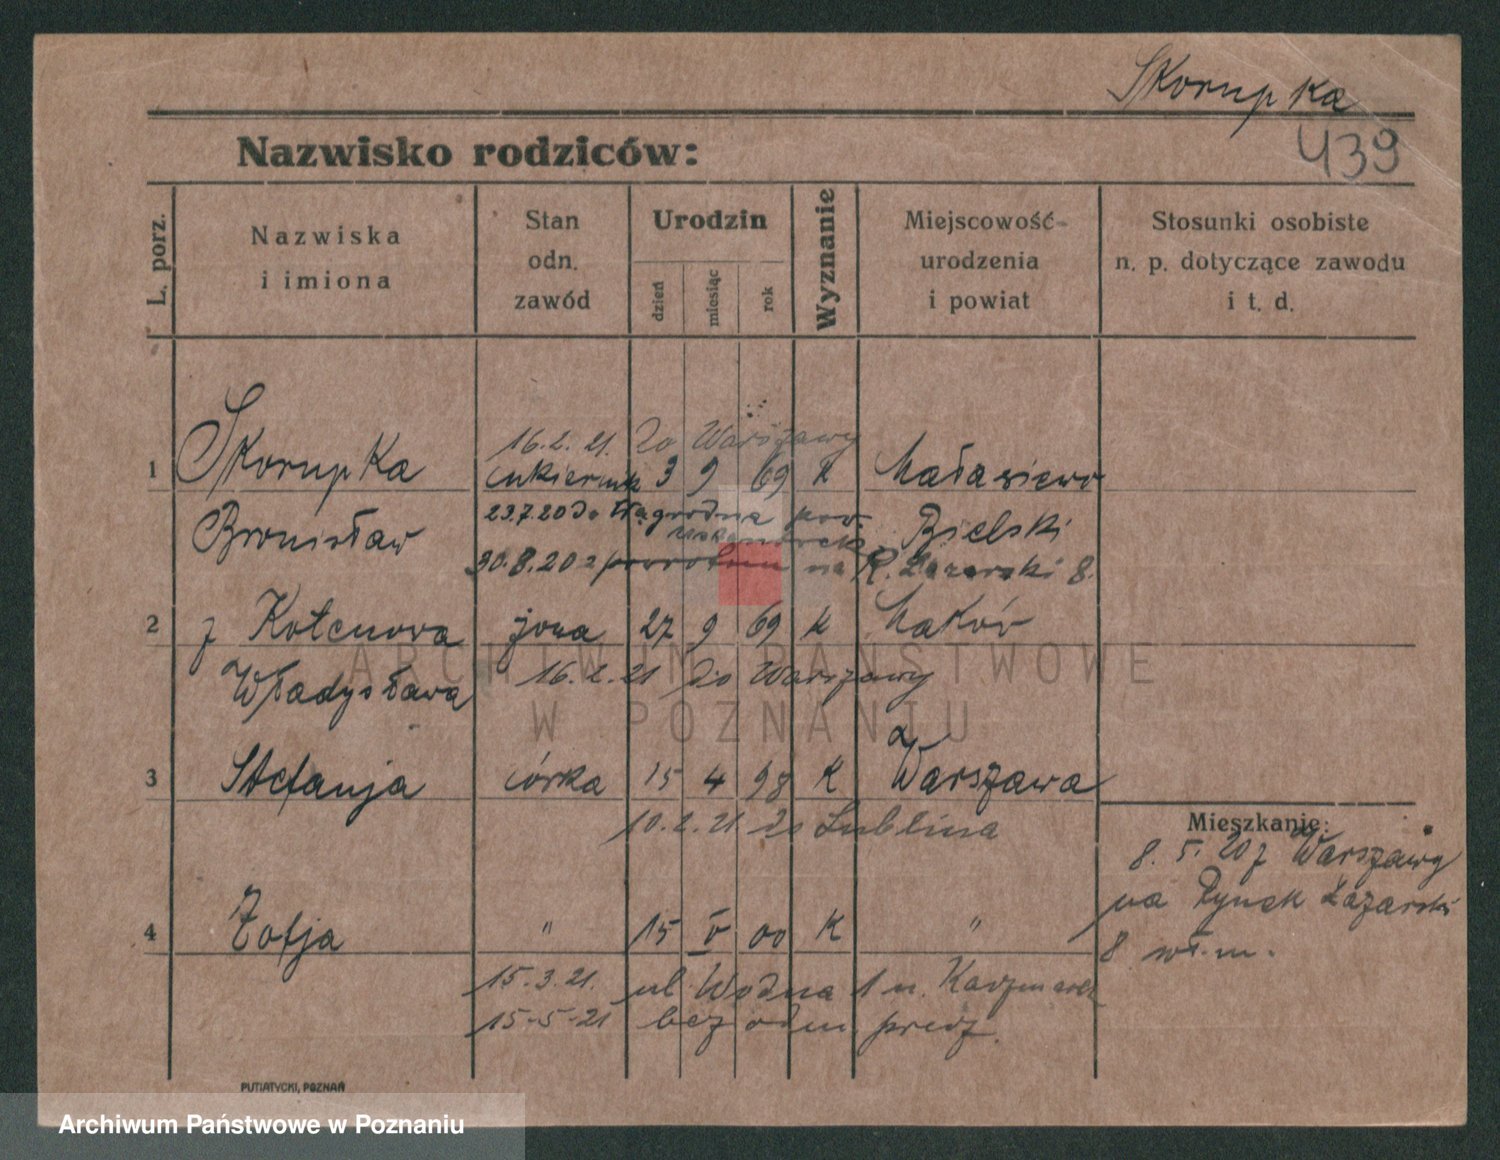 Skorupka
439
Nazwisko rodziców:
L. porz.
Nazwiska
i imiona
Stan
odn.
zawód
Urodzin
dzień
miesiąc
rok
Wyznanie
Miejscowość
urodzenia
i powiat
Stosunki osobiste
n. p. dotyczące zawodu
i t. d.
16.2.21. do Warszawy
1 Skorupka cukiernik 3 9 69 k
Bronisław Bielski
23.7.20 do pow.
30.8.20 z powrotem na R. Łazarski 8.
2 z żona 27 9 69 k Maków
Władysława
16.2.21 do Warszawy
ARCHIWUM PAŃSTWOWE
W POZNANIU
3 Stefanja córka 15 4 98 k Warszawa
10.2.21 do Lublina
Mieszkanie:
8.5.20 z Warszawy
na Rynek Łazarski
8 wł. m.
4 Zofja " 15 V 00 K "
15.3.21. ul. Wodna 1 u. Kaczmarek
15-5-21 bez odm. przez
PUTIATYCKI, POZNAŃ
Archiwum Państwowe w Poznaniu